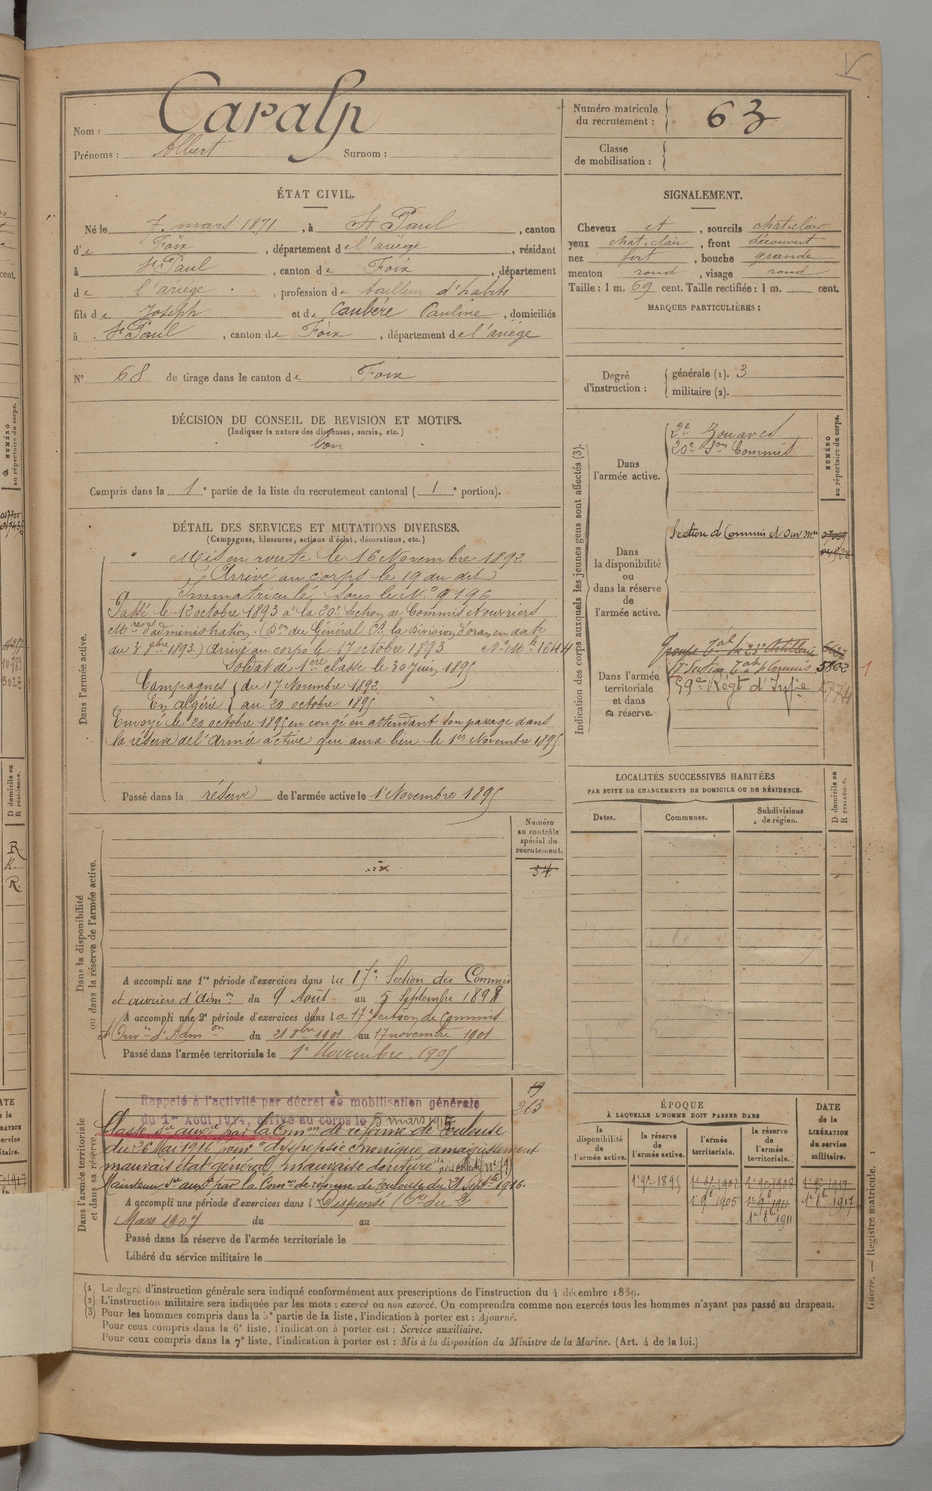 Nom : Caralp
Prénoms : Albert Surnom :
Numéro matricule du recrutement : 63
Classe de mobilisation :
ÉTAT CIVIL.
Né le 7 mars 1871, à St Paul, canton
de Foix, département de l'ariège, résidant
à St Paul, canton de Foix, département
de l'ariège, profession de tailleur d'habits
fils de Joseph et de Caubère Pauline, domiciliés
à St Paul, canton de Foix, département de l'ariège
N° 68 de tirage dans le canton de Foix
SIGNALEMENT.
Cheveux et, sourcils chat. clair
yeux chat. clair, front découvert
nez fort, bouche grande
menton rond, visage rond
Taille : 1 m. 69 cent. Taille rectifiée : 1 m. cent.
MARQUES PARTICULIÈRES :
Degré d'instruction : générale (1). 3
militaire (2).
DÉCISION DU CONSEIL DE REVISION ET MOTIFS.
(Indiquer la nature des dispenses, sursis, etc.)
bon
Compris dans la 1e partie de la liste du recrutement cantonal (1e portion).
DÉTAIL DES SERVICES ET MUTATIONS DIVERSES.
(Campagnes, blessures, actions d'éclat, décorations, etc.)
Dans l'armée active.
Mis en route le 16 Novembre 1892
Arrivé au corps le 19 du dit
Immatriculé sous le N° 9196
Passé le 12 octobre 1893 à la 20e Section de Commis et ouvriers
Mres d'administration. (Don du Général Ct la Division d'oran en date
du 7 8bre 1893.) Arrivé au corps le 17 octobre 1893 No Mle 1644
Soldat de 1ère classe le 30 Juin 1895
Campagnes du 17 Novembre 1892
En algérie au 29 octobre 1895
Envoyé le 29 octobre 1895 en congé en attendant son passage dans
la réserve de l'armée active qui aura lieu le 1er Novembre 1895
Passé dans la réserve de l'armée active le 1 Novembre 1895
Indication des corps auxquels les jeunes gens sont affectés (3).
NUMÉRO au répertoire du corps.
Dans l'armée active.
2e Zouaves
20e Son Commis
Dans la disponibilité ou dans la réserve de l'armée active.
Section d Commis et Ouv. Mre
Dans l'armée territoriale et dans sa réserve.
Groupe Tal du 23e Artillerie
17e Section Tale de Commis 5863
59e Régt d'Infie
LOCALITÉS SUCCESSIVES HABITÉES
PAR SUITE DE CHANGEMENTS DE DOMICILE OU DE RÉSIDENCE.
Dates. Communes. Subdivisions de région. D domicile ou R résidence.
Dans la disponibilité ou dans la réserve de l'armée active.
Numéro au contrôle spécial du recrutement.
54
A accompli une 1re période d'exercices dans la 17e Section des Commis
et ouvriers d'Admon du 9 Août au 5 Septembre 1898
A accompli une 2e période d'exercices dans la 17e Section de Commis
et Ouvrs d'Admon du 21 8bre 1901 au 17 novembre 1901
Passé dans l'armée territoriale le 1er Novembre 1905
Dans l'armée territoriale et dans sa réserve.
263
Rappelé à l'activité par décret de mobilisation générale
du 1er Août 1914, arrivé au corps le 5 mars 1915
Classé Sce auxre par la Comon de réforme de Toulouse
du 26 Mai 1916 pour "dyspepsie chronique amaigrissement
mauvais état général, mauvaise denture
Maintenu Sce auxre par la Comon de réforme de Toulouse du 21 Septbre 1916.
A accompli une période d'exercices dans l Dispensé
Mars 1907 du au
Passé dans la réserve de l'armée territoriale le
Libéré du service militaire le
ÉPOQUE
À LAQUELLE L'HOMME DOIT PASSER DANS
la disponibilité de l'armée active. la réserve de l'armée active. l'armée territoriale. la réserve de l'armée territoriale.
DATE de la LIBÉRATION du service militaire.
(1) Le degré d'instruction générale sera indiqué conformément aux prescriptions de l'instruction du 4 décembre 1889.
(2) L'instruction militaire sera indiquée par les mots : exercé ou non exercé. On comprendra comme non exercés tous les hommes n'ayant pas passé au drapeau.
(3) Pour les hommes compris dans la 5e partie de la liste, l'indication à porter est : Ajourné.
Pour ceux compris dans la 6e liste, l'indication à porter est : Service auxiliaire.
Pour ceux compris dans la 7e liste, l'indication à porter est : Mis à la disposition du Ministre de la Marine. (Art. 4 de la loi.)
Guerre. — Registre matricule. 1